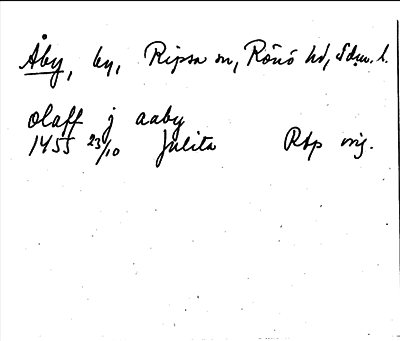 Åby, by, Ripsa sn, Rönö hd, Sdm. l.
olaff j aaby
1455 23/10 Julita RAp orig.